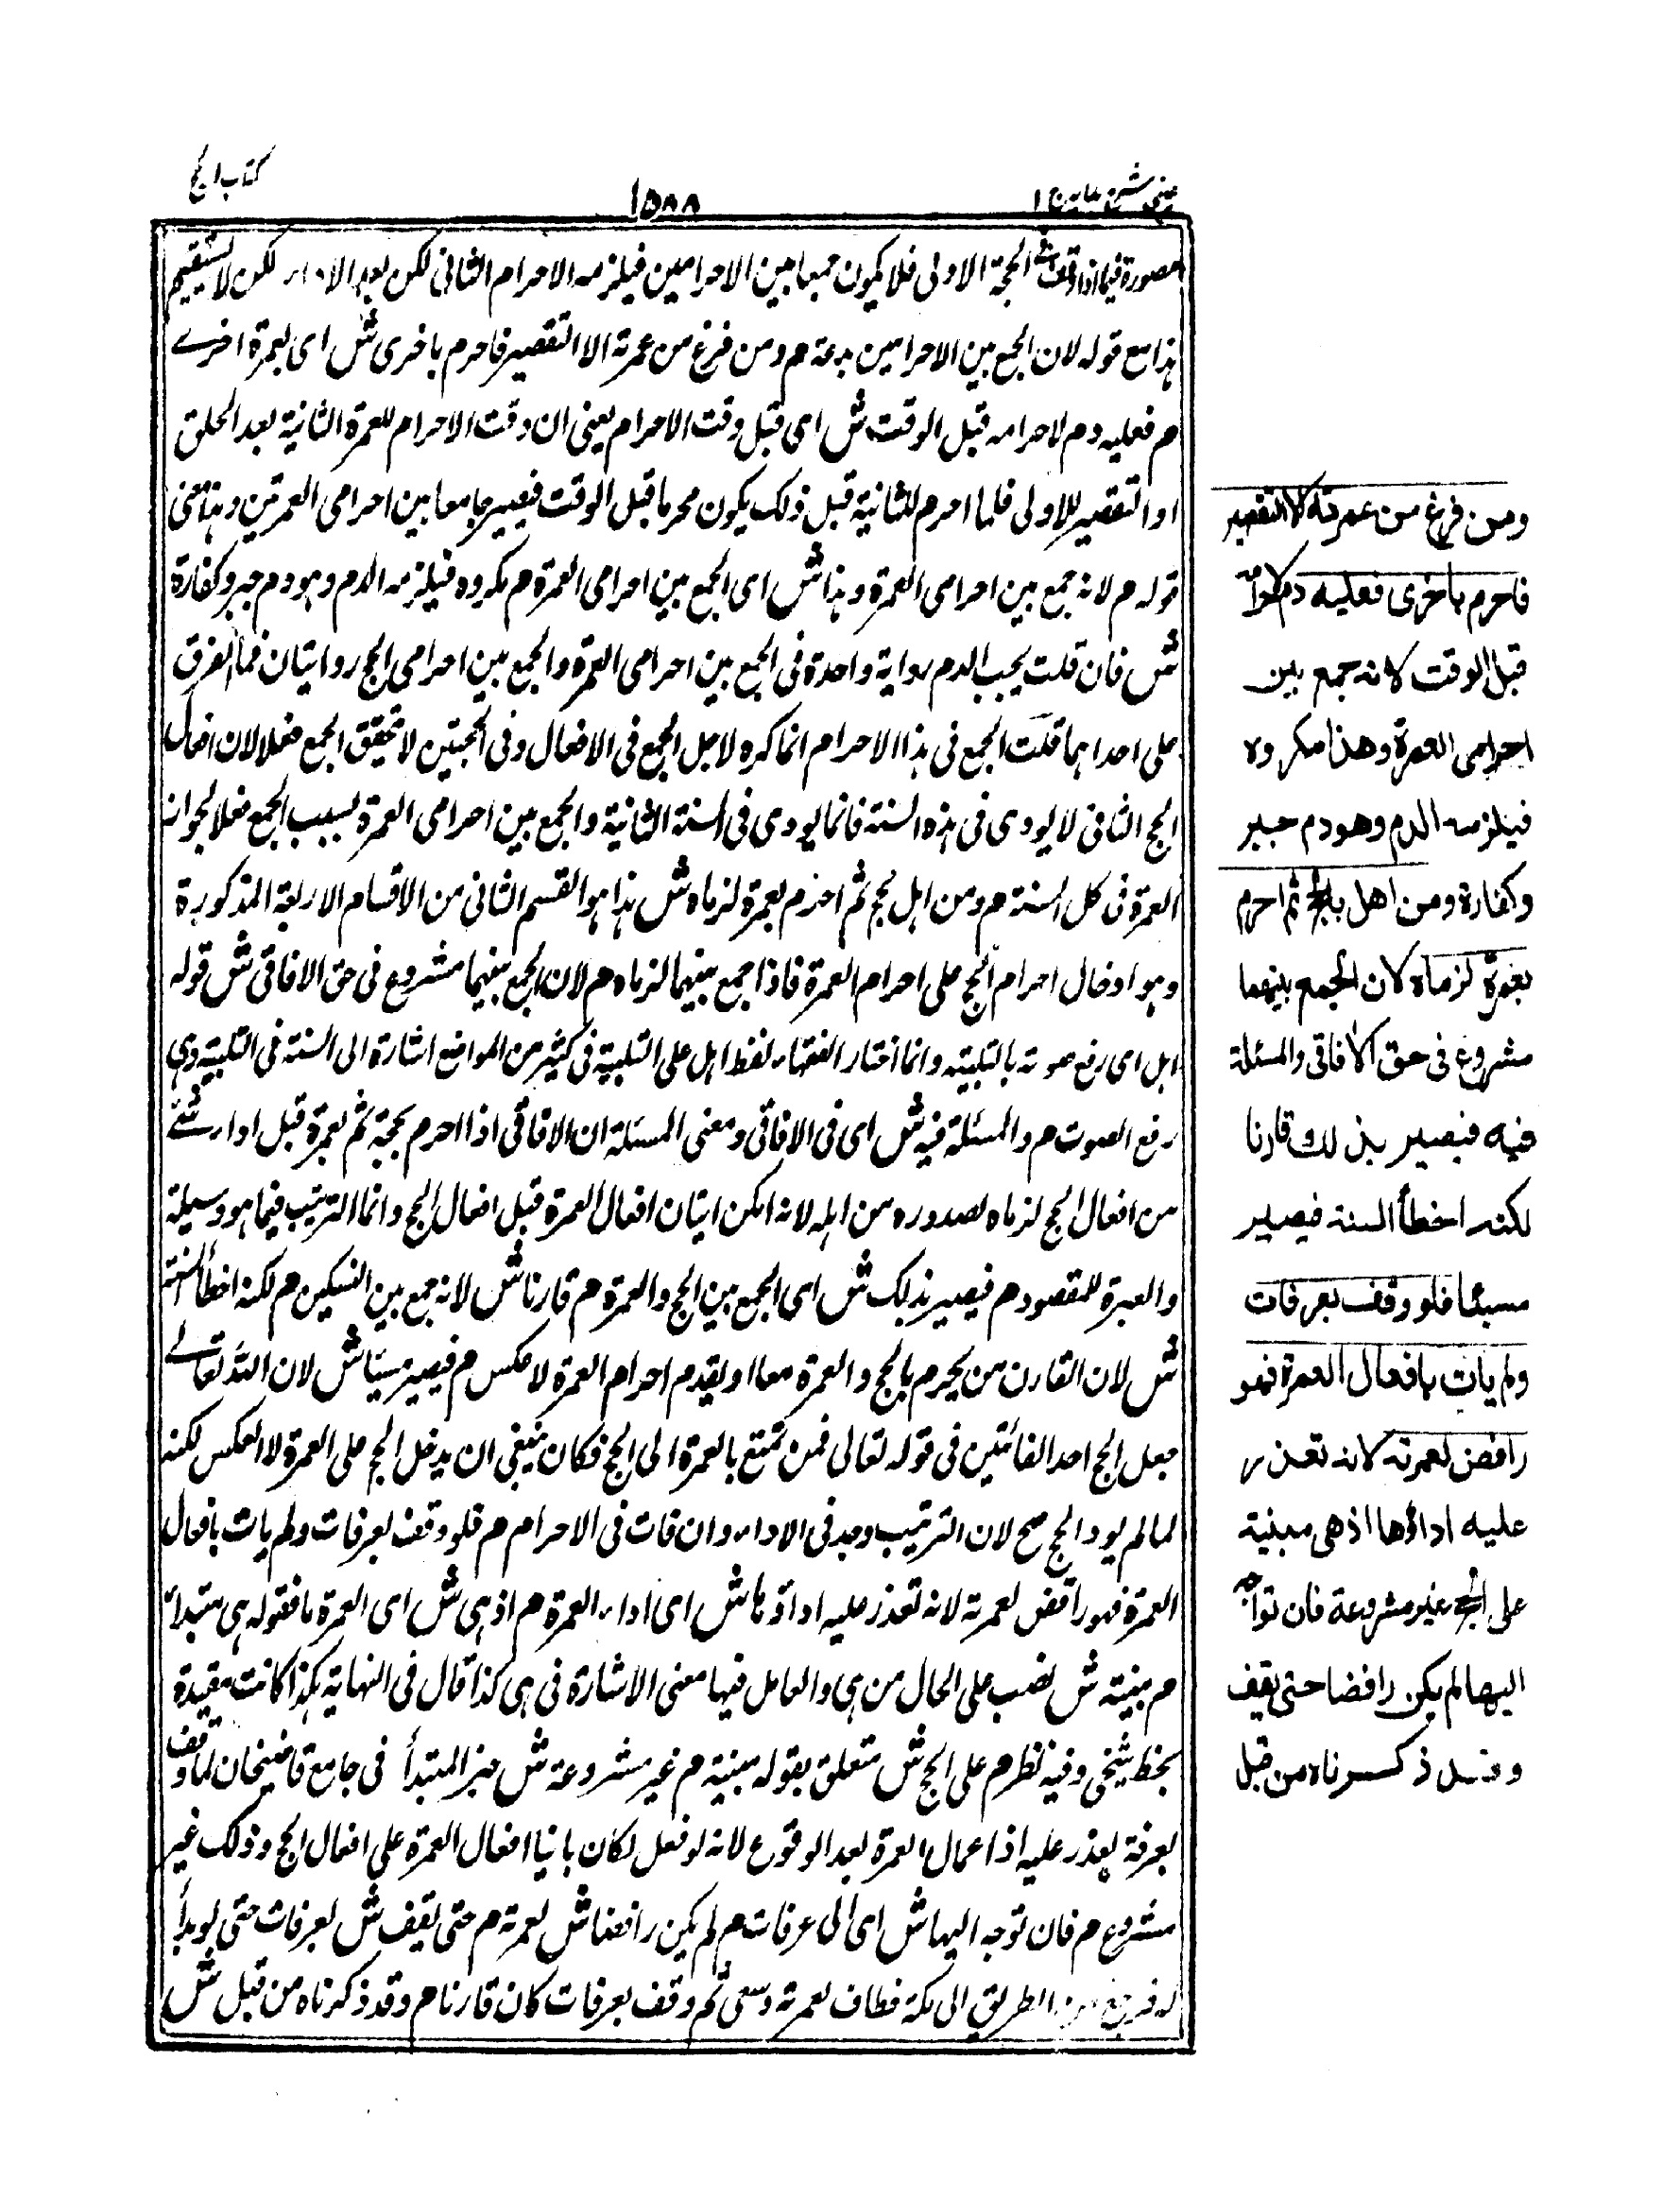 عینی شرح هدایة ج ١
١٥٨٨
کتاب الحج
مصورة فیما اذا وقعت الحجة الاولی فلا یکون جمعا بین الاحرامین فیلزمه الاحرام الثانی لکن لایستقیم
هذا مع قوله لان الجمع بین الاحرامین بدعة م ومن فرغ من عمرته الا التقصیر فاحرم باخری ش ای لعمرة اخرے
م فعلیه دم لاحرامه قبل الوقت ش ای قبل وقت الاحرام یعنی ان وقت الاحرام للعمرة الثانیة بعد الحلق
او التقصیر للاولی فلما احرم للثانیة قبل ذلک یکون محرما قبل الوقت فیصیر جامعا بین احرامی العمرتین وهذا معنی
قوله م لانه جمع بین احرامی العمرة وهذا ش ای الجمع بین احرامی العمرة م مکروه فیلزمه الدم وهو دم جبر وکفارة
ش فان قلت یجب الدم روایة واحدة فی الجمع بین احرامی العمرة والجمع بین احرامی الحج روایتان فما الفرق
علی احداهما قلت الجمع فی هذا الاحرام انما کره لاجل الجمع فی الافعال وفی الحجتین لا تحقیق الجمع فعلا لان افعال
الحج الثانی لا یودی فی هذه السنة فانما یودی فی السنة الثانیة والجمع بین احرامی العمرة لسبب الجمع فعلا لجواز
العمرة فی کل السنة م ومن اهل بحج ثم احرم بعمرة لزماه ش هذا هو القسم الثانی من الاقسام الاربعة المذکورة
وهو ادخال احرام الحج علی احرام العمرة فاذا جمع بینهما لزماه م لان الجمع بینهما مشروع فی حق الافاقی ش قوله
اهل ای رفع صوته بالتلبیة وانما اختار الفقهاء لفظ اهل علی التلبیة فی کثیر من المواضع اشارة الی السنة فی التلبیة وهی
رفع الصوت م والمسئلة فیه ش ای فی الافاقی ومعنی المسئلة ان الافاقی اذا احرم بحجة ثم بعمرة قبل اداء شئے
من افعال الحج لزماه لصدوره من اهله لانه امکن اتیان افعال العمرة قبل افعال الحج وانما الترتیب فیما هو وسیلة
والعبرة للمقصود م فیصیر بذلک ش ای الجمع بین الحج والعمرة م قارنا ش لانه جمع بین النسکین م لکنه اخطأ السنة
ش لان القارن من یحرم بالحج والعمرة معا او یقدم احرام العمرة لا عکس م فیصیر مسیئا ش لان الله تعالے
جعل الحج احد الغائتین فی قوله تعالی فمن تمتع بالعمرة الی الحج فکان ینبغی ان یدخل الحج علی العمرة لا العکس لکنه
لما لم یود الحج صح لان الترتیب وجد فی الاداء وان فات فی الاحرام م فلو وقف بعرفات ولم یات بافعال
العمرة فهو رافض لعمرته لانه تعذر علیه اداؤها ش ای اداء العمرة م اذ هی ش ای العمرة فقوله هی مبتدأ
م مبنیة ش نصب علی الحال من هی والعامل فیها معنی الاشارة فی هی کذا قال فی النهایة هکذا کانت مقیدة
بخط شیخی وفیه نظر م علی الحج ش متعلق بقوله مبنیة م غیر مشروعة ش خبر المبتدأ فی جامع قاضیخان لما وقف
بعرفة یعذر علیه اذا اعمال العمرة بعد الوقوع لانه لو فعل لکان بانیا افعال العمرة علی افعال الحج وذلک غیر
مشروع م فان توجه الیها ش ای الی عرفات م لم یکن رافضا ش لعمرته م حتی یقف ش بعرفات حتی لو بدأ
له فرجع من الطریق الی مکة فطاف لعمرته وسعی ثم وقف بعرفات کان قارنا م وقد ذکرناه من قبل ش
ومن فرغ من عمرته الا التقصیر
فاحرم باخری فعلیه دم لاحرامه
قبل الوقت لانه جمع بین
احرامی العمرة وهذا مکروه
فیلزمه الدم وهو دم جبر
وکفارة ومن اهل بالحج ثم احرم
بعمرة لزماه لان الجمع بینهما
مشروع فی حق الافاقی والمسئلة
فیه فیصیر بذلك قارنا
لکنه اخطأ السنة فیصیر
مسیئا فلو وقف بعرفات
ولم یات بافعال العمرة فهو
رافض لعمرته لانه تعذر
علیه اداؤها اذ هی مبنیة
علی الحج غیر مشروعة فان توجه
الیها لم یکن رافضا حتی یقف
وقد ذکرناه من قبل